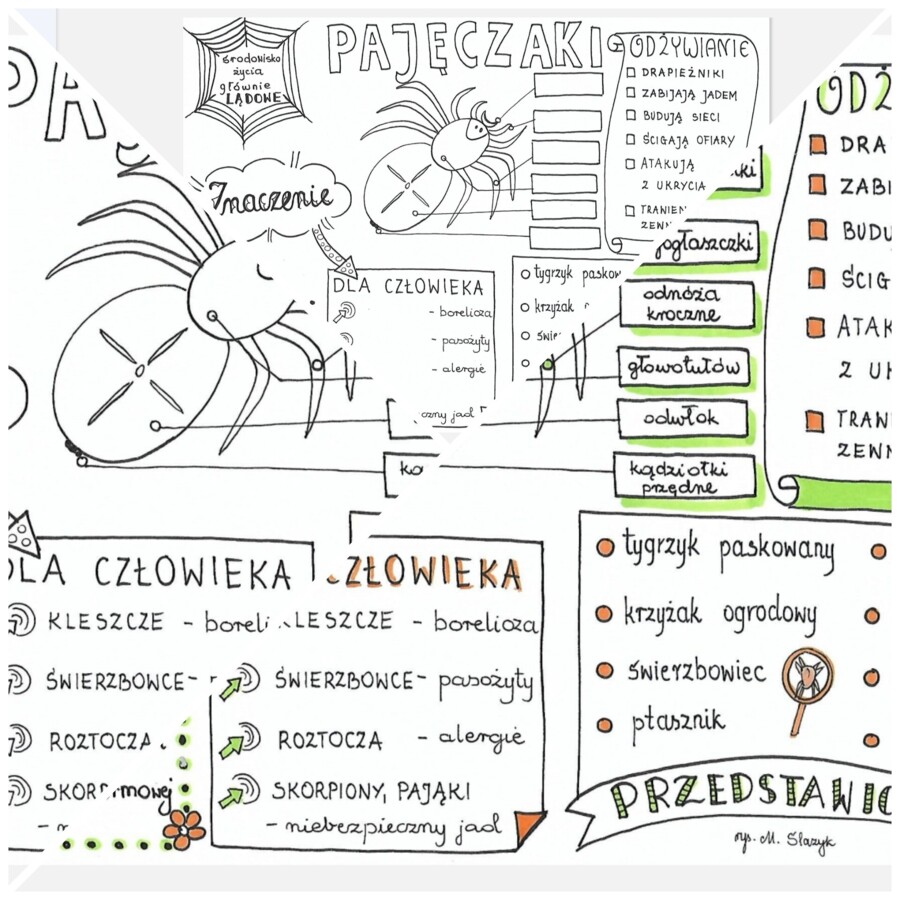 środowisko
życia
głównie
LĄDOWE
PAJĘCZAKI
ODŻYWIANIE
DRAPIEŻNIKI
ZABIJAJĄ JADEM
BUDUJĄ SIECI
ŚCIGAJĄ OFIARY
ATAKUJĄ
Z UKRYCIA
TRAWIEN
ZEWN
Znaczenie
DLA CZŁOWIEKA
- borelioza
- pasożyty
- alergie
czny jad
tygrzyk pasko
krzyżak
świe
PA
ki
ogłaszczki
odnóża
kroczne
głowotułów
odwłok
kądziołki
przędne
ko
ODŻ
DRA
ZABI
BUDU
ŚCIG
ATAK
Z UK
TRAW
ZEWN
LA CZŁOWIEKA
KLESZCZE - boreli
ŚWIERZBOWCE -
ROZTOCZA
SKOR
mowej
ZŁOWIEKA
LESZCZE - borelioza
ŚWIERZBOWCE - pasożyty
ROZTOCZA - alergie
SKORPIONY, PAJĄKI
- niebezpieczny jad
tygrzyk paskowany
krzyżak ogrodowy
świerzbowiec
ptasznik
PRZEDSTAWIC
rys. M. Ślazyk